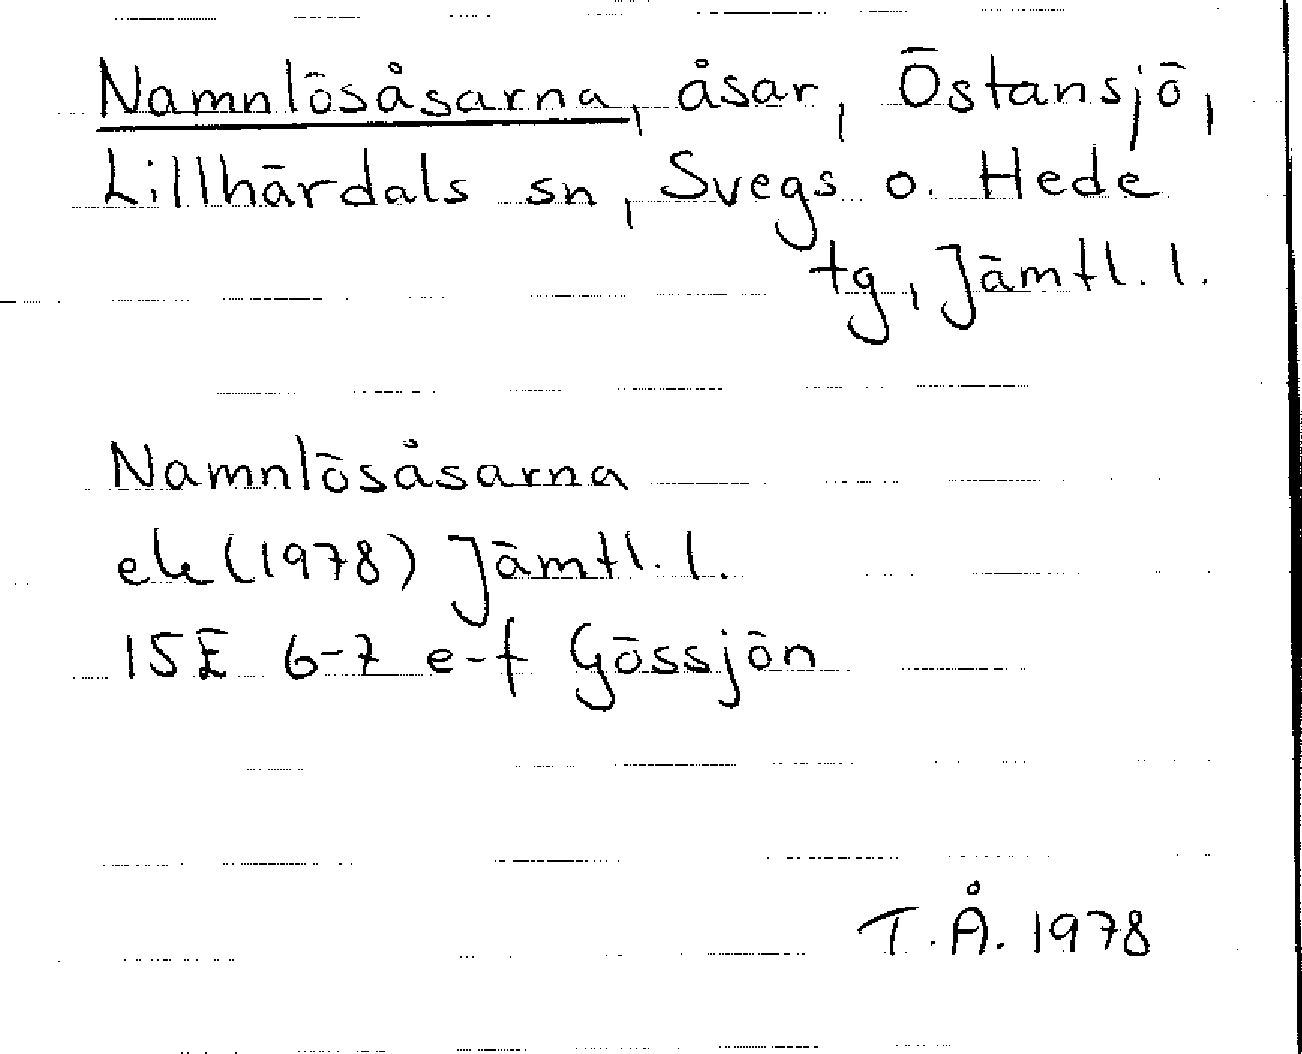 Namnlösåsarna, åsar, Östansjö,
Lillhärdals sn, Svegs o. Hede
tg, Jämtl. l.
Namnlösåsarna
ek (1978) Jämtl. l.
15E 6-7 e-f Gössjön
T.Å. 1978